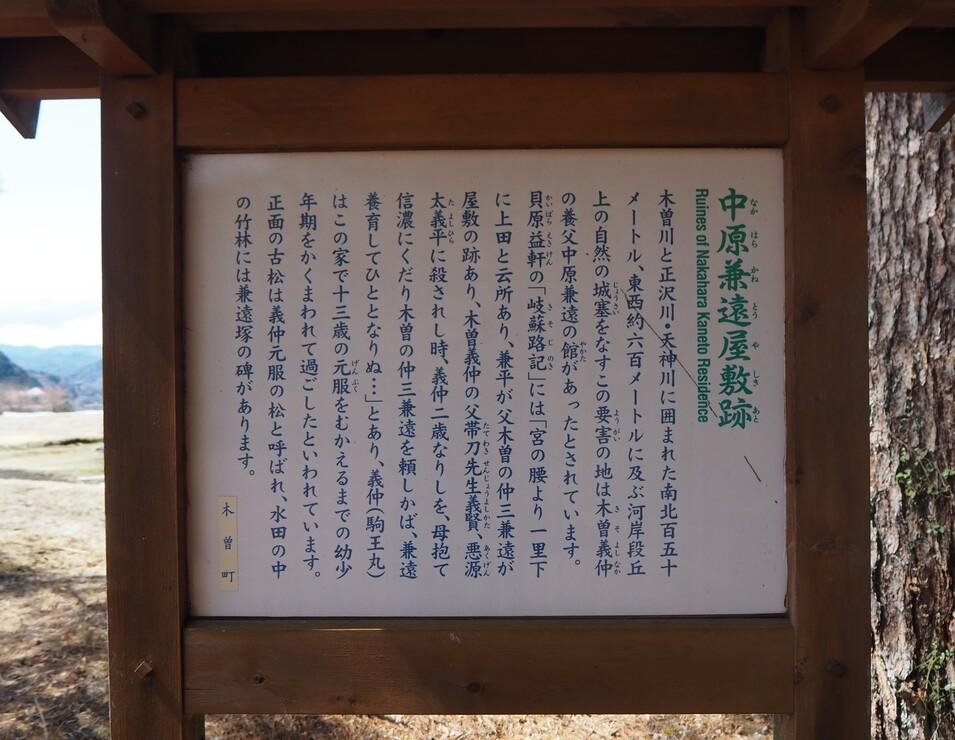 中原兼遠屋敷跡
なか はら かね とう や しき あと
Ruines of Nakahara Kaneto Residence
木曽川と正沢川・天神川に囲まれた南北百五十
メートル、東西約六百メートルに及ぶ河岸段丘
上の自然の城塞をなすこの要害の地は木曽義仲
じょうさい ようがい き そ よしなか
の養父中原兼遠の館があったとされています。
やかた
貝原益軒の「岐蘇路記」には「宮の腰より一里下
かいばら えきけん き そ じ のき
に上田と云所あり、兼平が父木曽の仲三兼遠が
屋敷の跡あり、木曽義仲の父帯刀先生義賢、悪源
たてわき せんじょうよしかた あくげん
太義平に殺されし時、義仲二歳なりしを、母抱て
た よしひら
信濃にくだり木曽の仲三兼遠を頼しかば、兼遠
養育してひととなりぬ…」とあり、義仲(駒王丸)
はこの家で十三歳の元服をむかえるまでの幼少
げん ぷく
年期をかくまわれて過ごしたといわれています。
正面の古松は義仲元服の松と呼ばれ、水田の中
の竹林には兼遠塚の碑があります。
木曽町